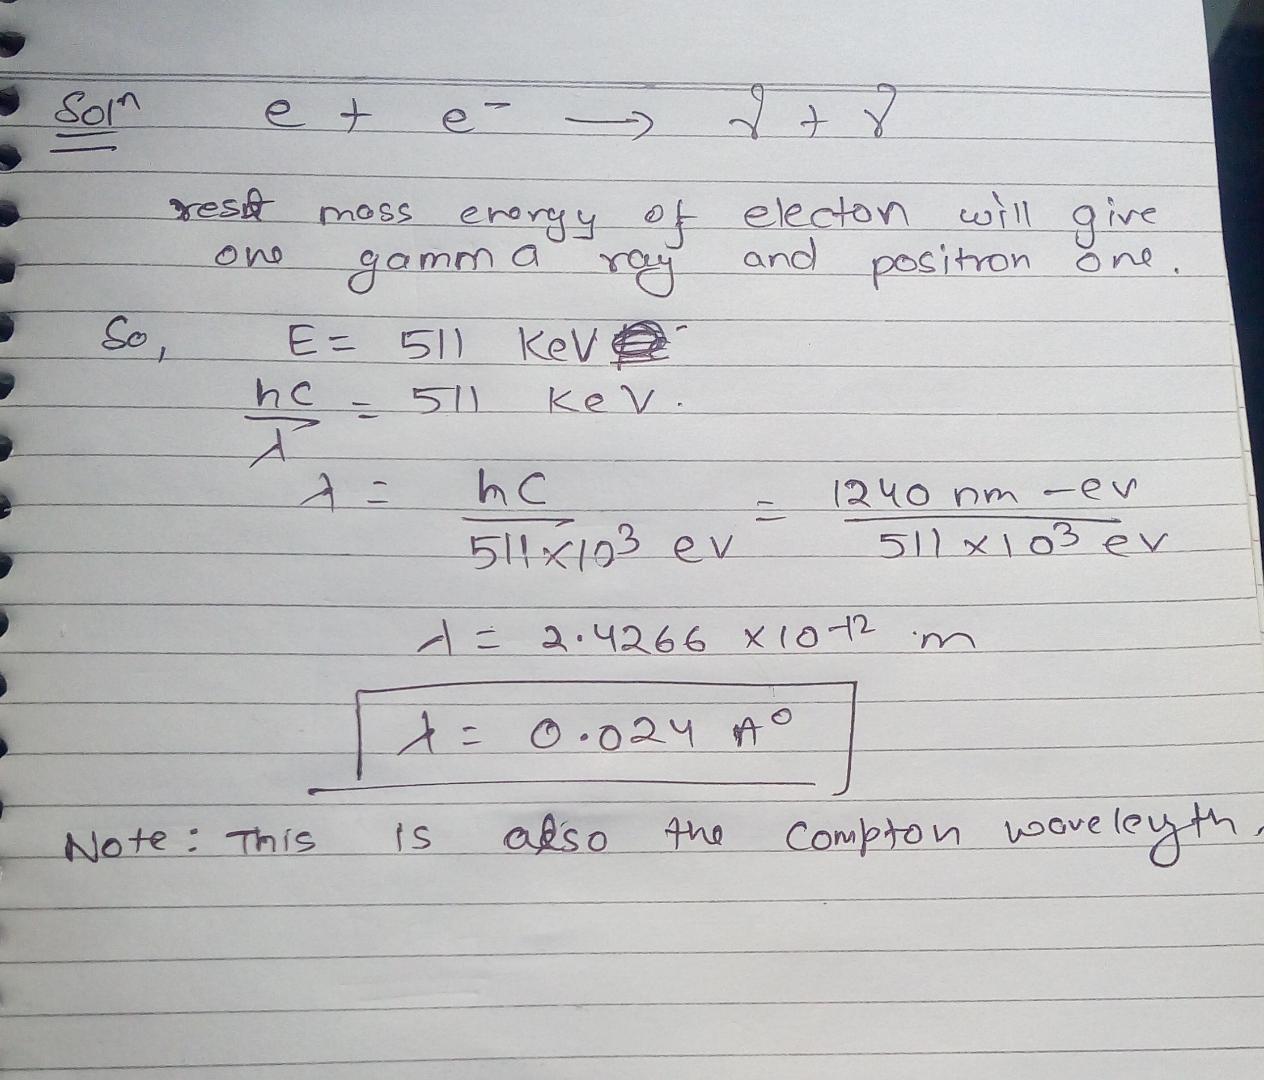 Solⁿ e + e⁻ → γ + γ
rest mass energy of electon will give
one gamma ray and positron one.
So, E = 511 KeV
hc/λ = 511 KeV.
λ = hc/511×10³ ev = 1240 nm-ev/511×10³ ev
λ = 2.4266 ×10⁻¹² m
λ = 0.024 A⁰
Note: This is also the Compton waveleyth.